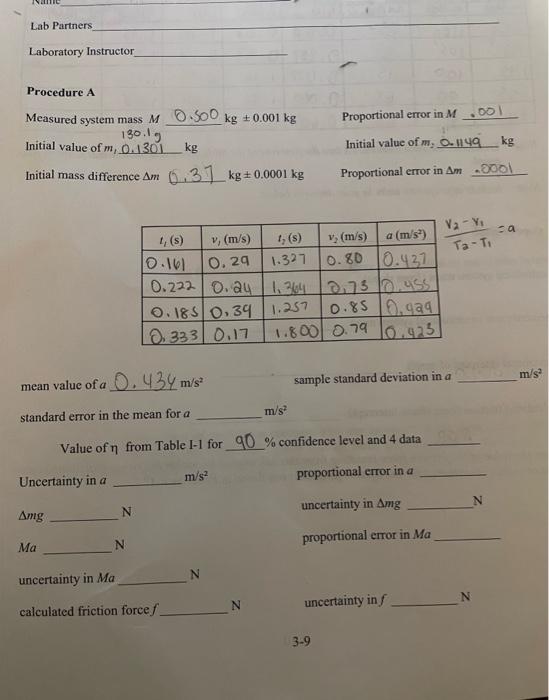 Name
Lab Partners
Laboratory Instructor
Procedure A
Measured system mass M 0.500 kg ± 0.001 kg Proportional error in M .001
130.1g
Initial value of m₁ 0.1301 kg Initial value of m₂ 0.1149 kg
Initial mass difference Δm 0.37 kg ± 0.0001 kg Proportional error in Δm .0001
t₁ (s) v₁ (m/s) t₂ (s) v₂ (m/s) a (m/s²) V₂ - V₁ / T₂ - T₁ = a
0.161 0.29 1.327 0.80 0.437
0.222 0.24 1.364 0.75 0.455
0.185 0.39 1.257 0.85 0.429
0.333 0.17 1.800 0.79 0.423
mean value of a 0.434 m/s² sample standard deviation in a m/s²
standard error in the mean for a m/s²
Value of η from Table I-1 for 90 % confidence level and 4 data
Uncertainty in a m/s² proportional error in a
Δmg N uncertainty in Δmg N
Ma N proportional error in Ma
uncertainty in Ma N
calculated friction force f N uncertainty in f N
3-9